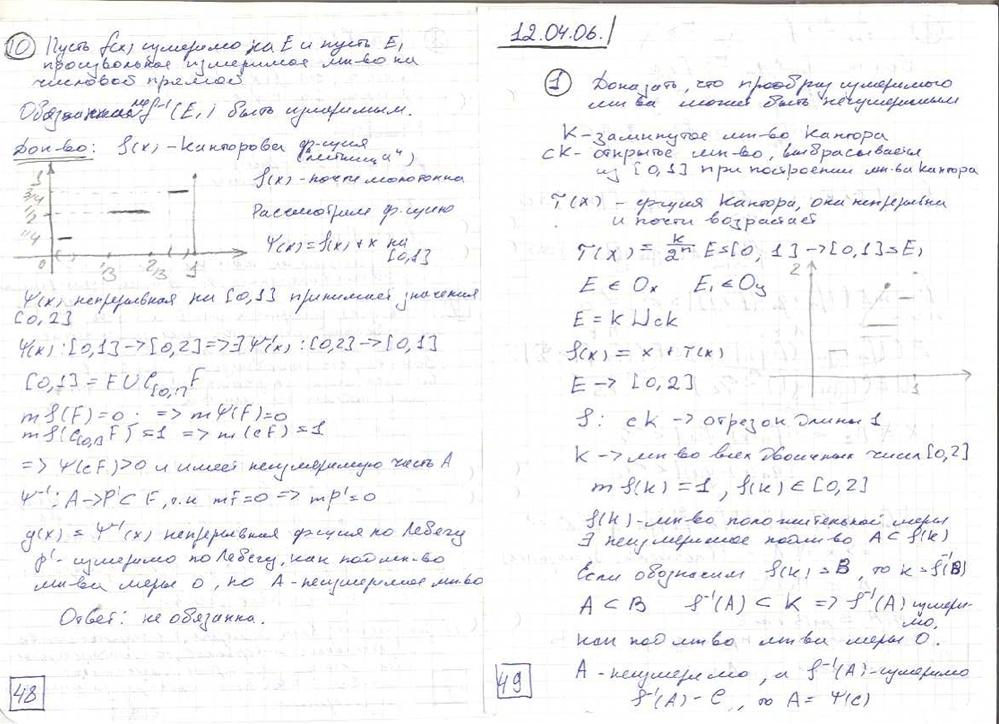 10 Пусть f(x) измеримо на E и пусть E₁
произвольное измеримое мн-во на
числовой прямой
Обязанная ли f⁻¹(E₁) быть измеримым.
Док-во: f(x) - Канторова ф-ция
("лестница")
f(x) - почти монотонна
Рассмотрим ф-цию
Ψ(x) = f(x) + x на
[0,1]
1
3/4
1/2
1/4
0
1/3
2/3
1
Ψ(x) непрерывная на [0,1] принимает значения
[0,2]
Ψ(x): [0,1] → [0,2] => ∃ Ψ⁻¹(x): [0,2] → [0,1]
[0,1] = F ∪ C[0,1]F
m f(F) = 0 => m Ψ(F) = 0
m f(C[0,1]F) = 1 => m(CF) = 1
=> Ψ(CF) > 0 и имеет неизмеримую часть A
Ψ⁻¹: A → P' ⊂ F, т.к mF = 0 => mp' = 0
g(x) = Ψ⁻¹(x) непрерывная ф-ция по Лебегу
p' - измеримо по Лебегу, как подмн-во
мн-ва меры 0, но A - неизмеримое мн-во
Ответ: не обязанна.
48
12.04.06.
1 Доказать, что прообраз измеримого
мн-ва может быть неизмеримым
K - замкнутое мн-во Кантора
CK - открытое мн-во, выбрасывается
из [0,1] при построении мн-ва Кантора
τ(x) - ф-ция Кантора, она непрерывна
и почти возрастает
τ(x) = k/2ⁿ E = [0,1] → [0,1] = E₁
E ∈ Ox E₁ ∈ Oy
E = K ⊔ CK
f(x) = x + τ(x)
E → [0,2]
2
1
f: CK → отрезок длины 1
K → мн-во всех двоичных чисел [0,2]
m f(K) = 1, f(K) ∈ [0,2]
f(K) - мн-во положительной меры
∃ неизмеримое подмн-во A ⊂ f(K)
Если обозначим f(K) = B, то K = f⁻¹(B)
A ⊂ B f⁻¹(A) ⊂ K => f⁻¹(A) измери-
мо,
как подмн-во мн-ва меры 0.
A - неизмеримо, а f⁻¹(A) - измеримо
f⁻¹(A) - C, то A = Ψ(C)
49